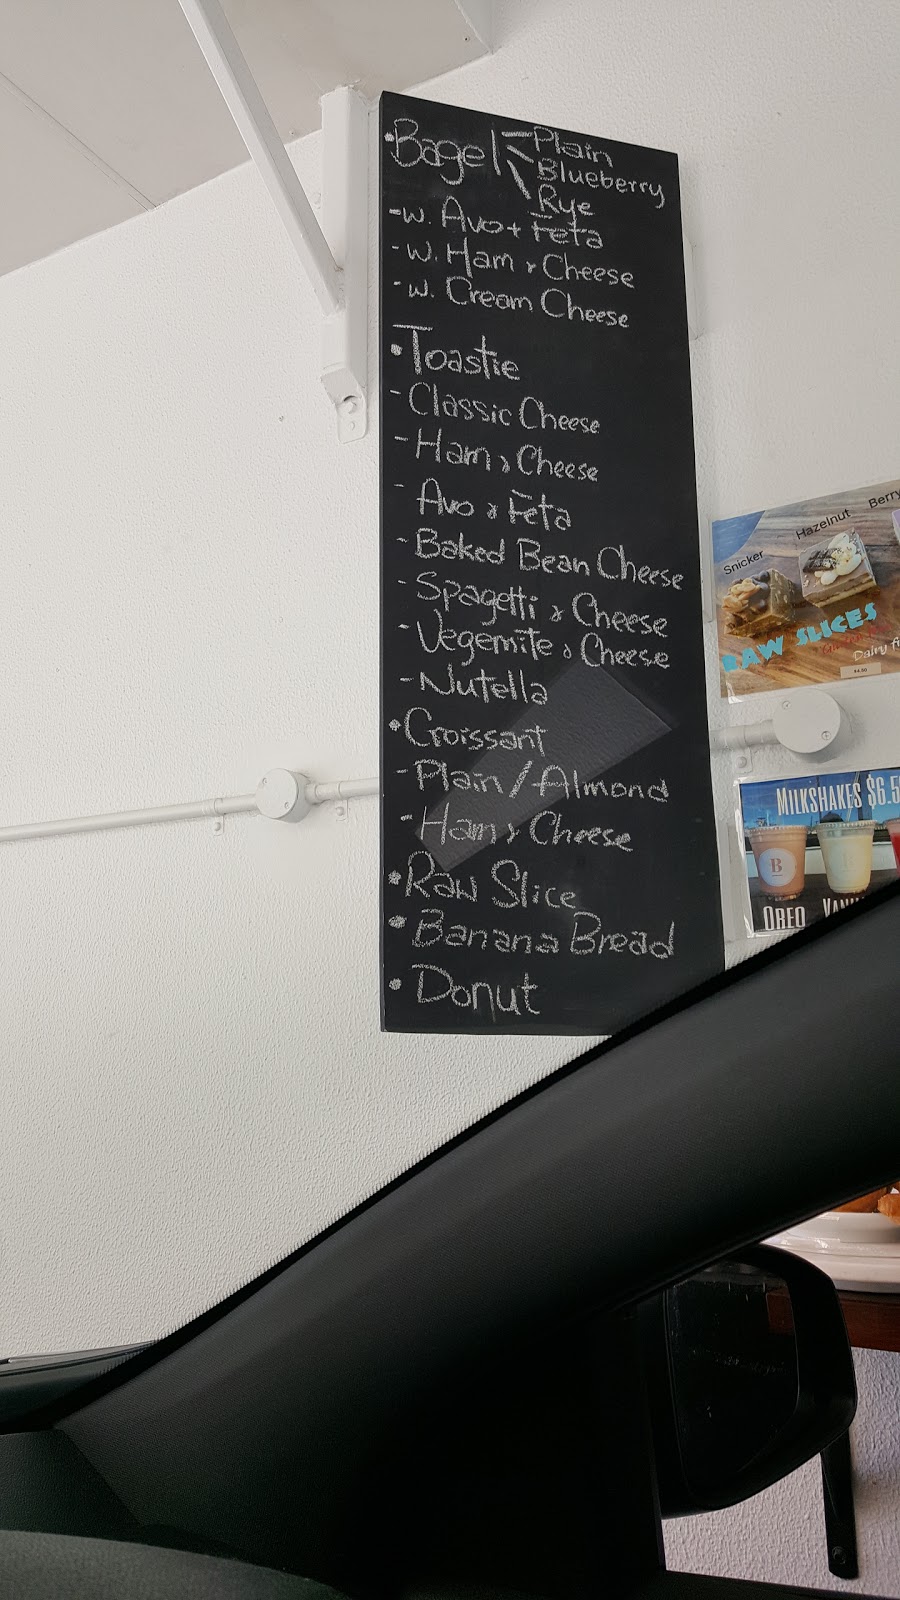 •Bagel
Plain
Blueberry
Rye
-w. Avo + Feta
-w. Ham & Cheese
-w. Cream Cheese
•Toastie
-Classic Cheese
-Ham & Cheese
-Avo & Feta
-Baked Bean Cheese
-Spagetti & Cheese
-Vegemite & Cheese
-Nutella
•Croissant
-Plain/Almond
-Ham & Cheese
•Raw Slice
•Banana Bread
•Donut
Snicker
Hazelnut
Berry
RAW SLICES
Dairy
MILKSHAKES $6.5
B
OREO